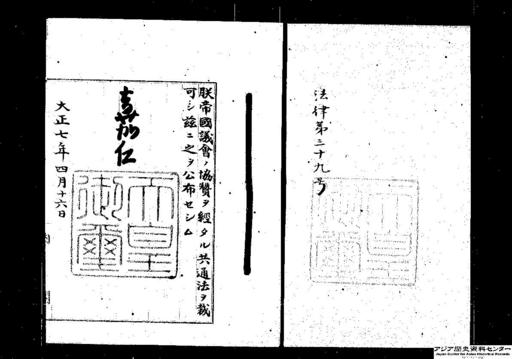 法律第三十九号
朕帝國議會ノ協賛ヲ經タル共通法ヲ裁
可シ茲ニ之ヲ公布セシム
嘉仁
天皇
御璽
大正七年四月十六日
アジア歴史資料センター
Japan Center for Asian Historical Records